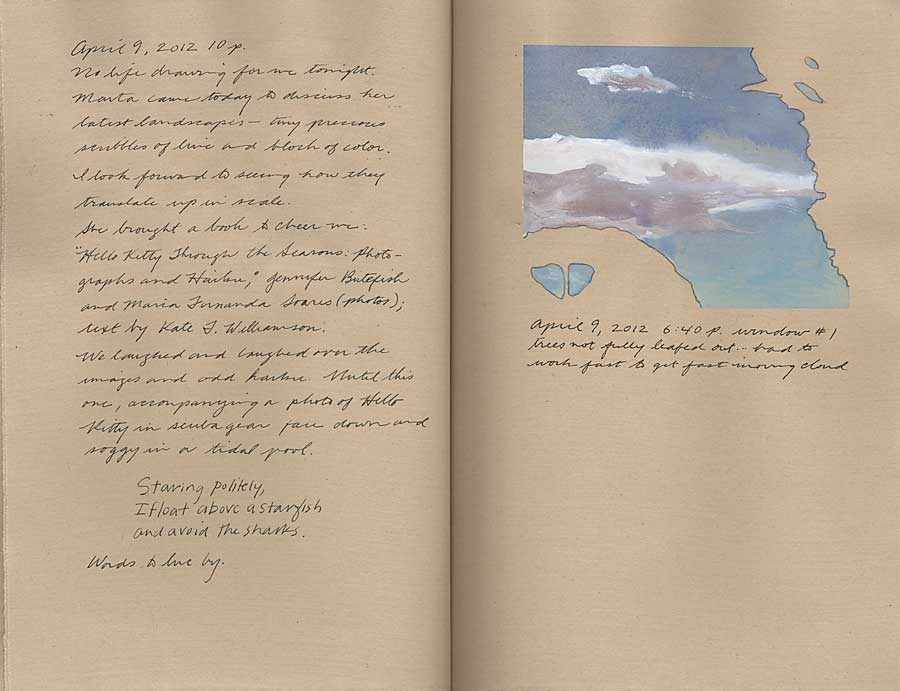 April 9, 2012 10 p.
No life drawing for me tonight.
Marta came today to discuss her
latest landscapes — tiny precious
scribbles of line and block of color.
I look forward to seeing how they
translate up in scale.
She brought a book to cheer me:
"Hello Kitty Through the Seasons: Photo-
graphs and Haiku," Jennifer Butefish
and Maria Fernanda Soares (photos);
text by Kate T. Williamson.
We laughed and laughed over the
images and odd haiku. Until this
one, accompanying a photo of Hello
Kitty in scuba gear face down and
soggy in a tidal pool.
Staring politely,
I float above a starfish
and avoid the sharks.
Words to live by.
April 9, 2012 6:40 p. window #1
trees not fully leafed out... had to
work fast to get fast moving cloud